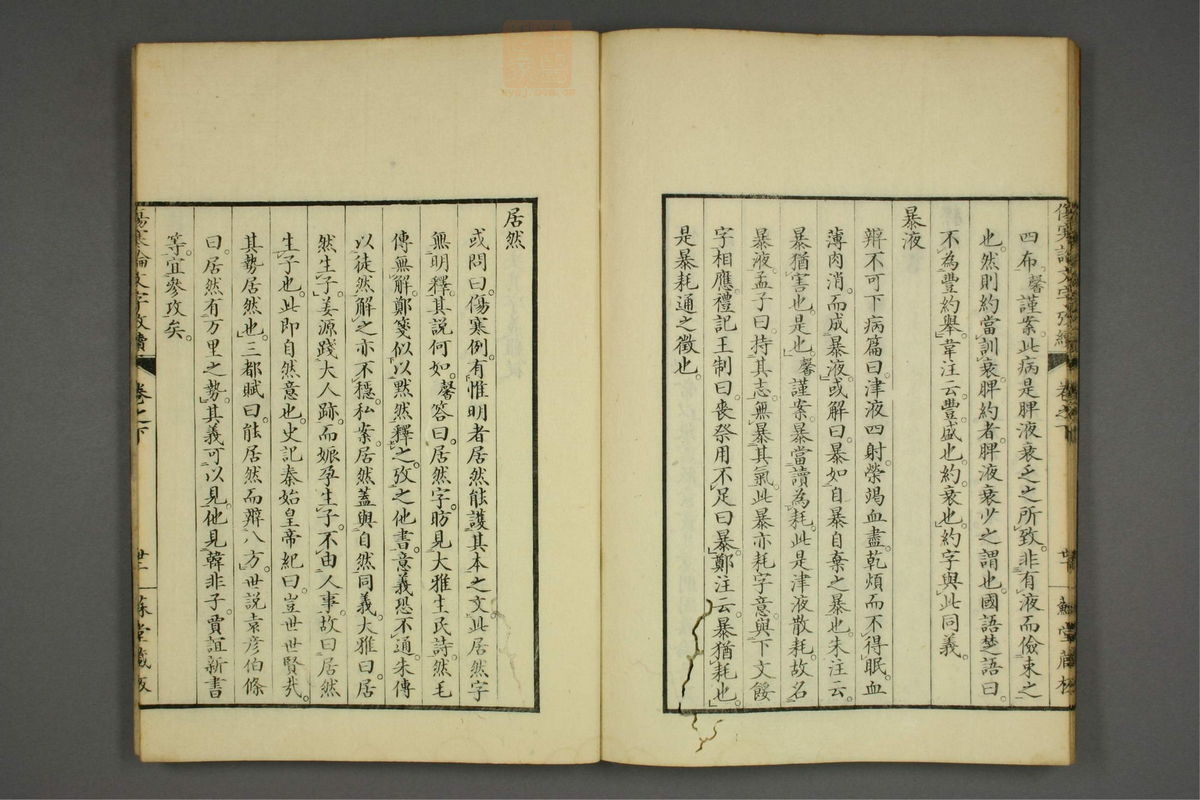 四布。馨謹案。此病是脾液衰乏之所致。非有液而儉束之
也。然則約當訓衰。脾約者。脾液衰少之謂也。國語楚語曰。
不為豐約舉。韋注云。豐盛也。約衰也。約字與此同義
暴液
辨不可下病篇曰。津液四射。榮竭血盡。乾煩而不得眠。血
薄肉消。而成暴液。或解曰。暴如自暴自棄之暴也。朱注云。
暴猶害也。是也。馨謹案。暴當讀為耗。此是津液散耗。故名
暴液。孟子曰。持其志。無暴其氣。此暴亦耗字意。與下文餒
字相應。禮記王制曰。喪祭用不足曰暴。鄭注云。暴猶耗也。
是暴耗通之徵也。
居然
或問曰。傷寒例。有惟明者居然能護其本之文。此居然字
無明釋。其說何如。馨答曰。居然字昉見大雅生民詩。然毛
傳無解。鄭箋似以默然釋之。攷之他書。意義恐不通。朱傳
以徒然解之。亦不穩。私案。居然蓋與自然同義。大雅曰。居
然生子。姜源踐大人跡。而娠孕生子。不由人事。故曰居然
生子也。此即自然意也。史記秦始皇帝紀曰。豈世世賢哉。
其勢居然也。三都賦曰。能居然而辨八方。世說袁彥伯條
曰。居然有万里之勢。其義可以見。他見韓非子賈誼新書
等。宜參攷矣。
傷寒論文字攷續 卷之下 世二 藏板